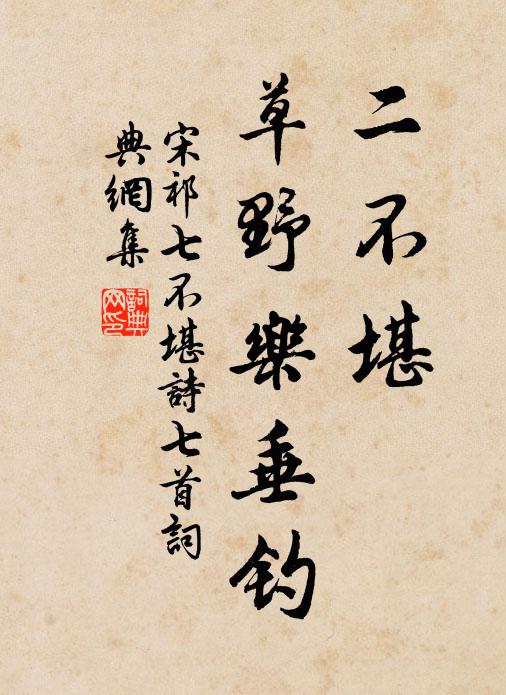 二不堪
草野樂垂釣
宋祁七不堪詩七首詞
典網集
詞典網印